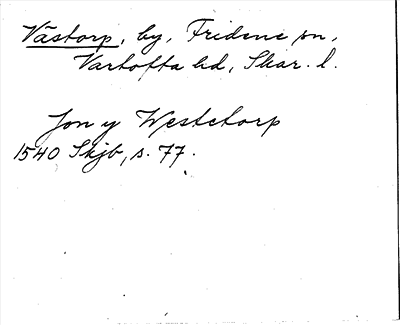 Västorp, by, Fridene sn,
Vartofta hd, Skar. l.
Jon y Westetorp
1540 Skjb, s. 77.